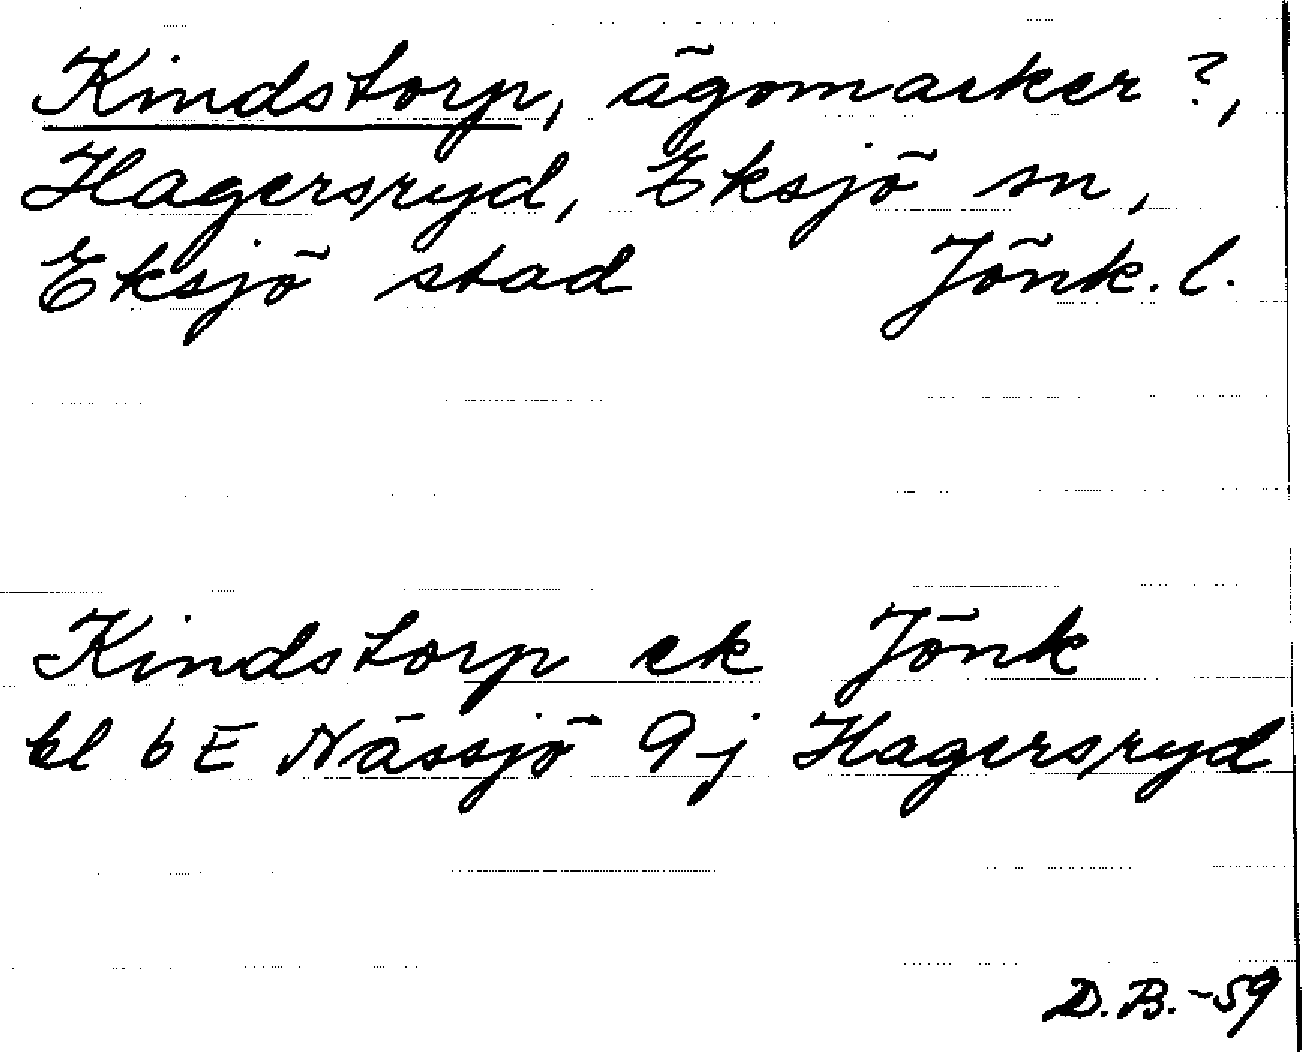 Kindstorp, ägomarker?,
Hagersryd, Eksjö sn,
Eksjö stad Jönk. l.
Kindstorp ek Jönk
bl 6 E Nässjö 9 j Hagersryd
D.B.-59